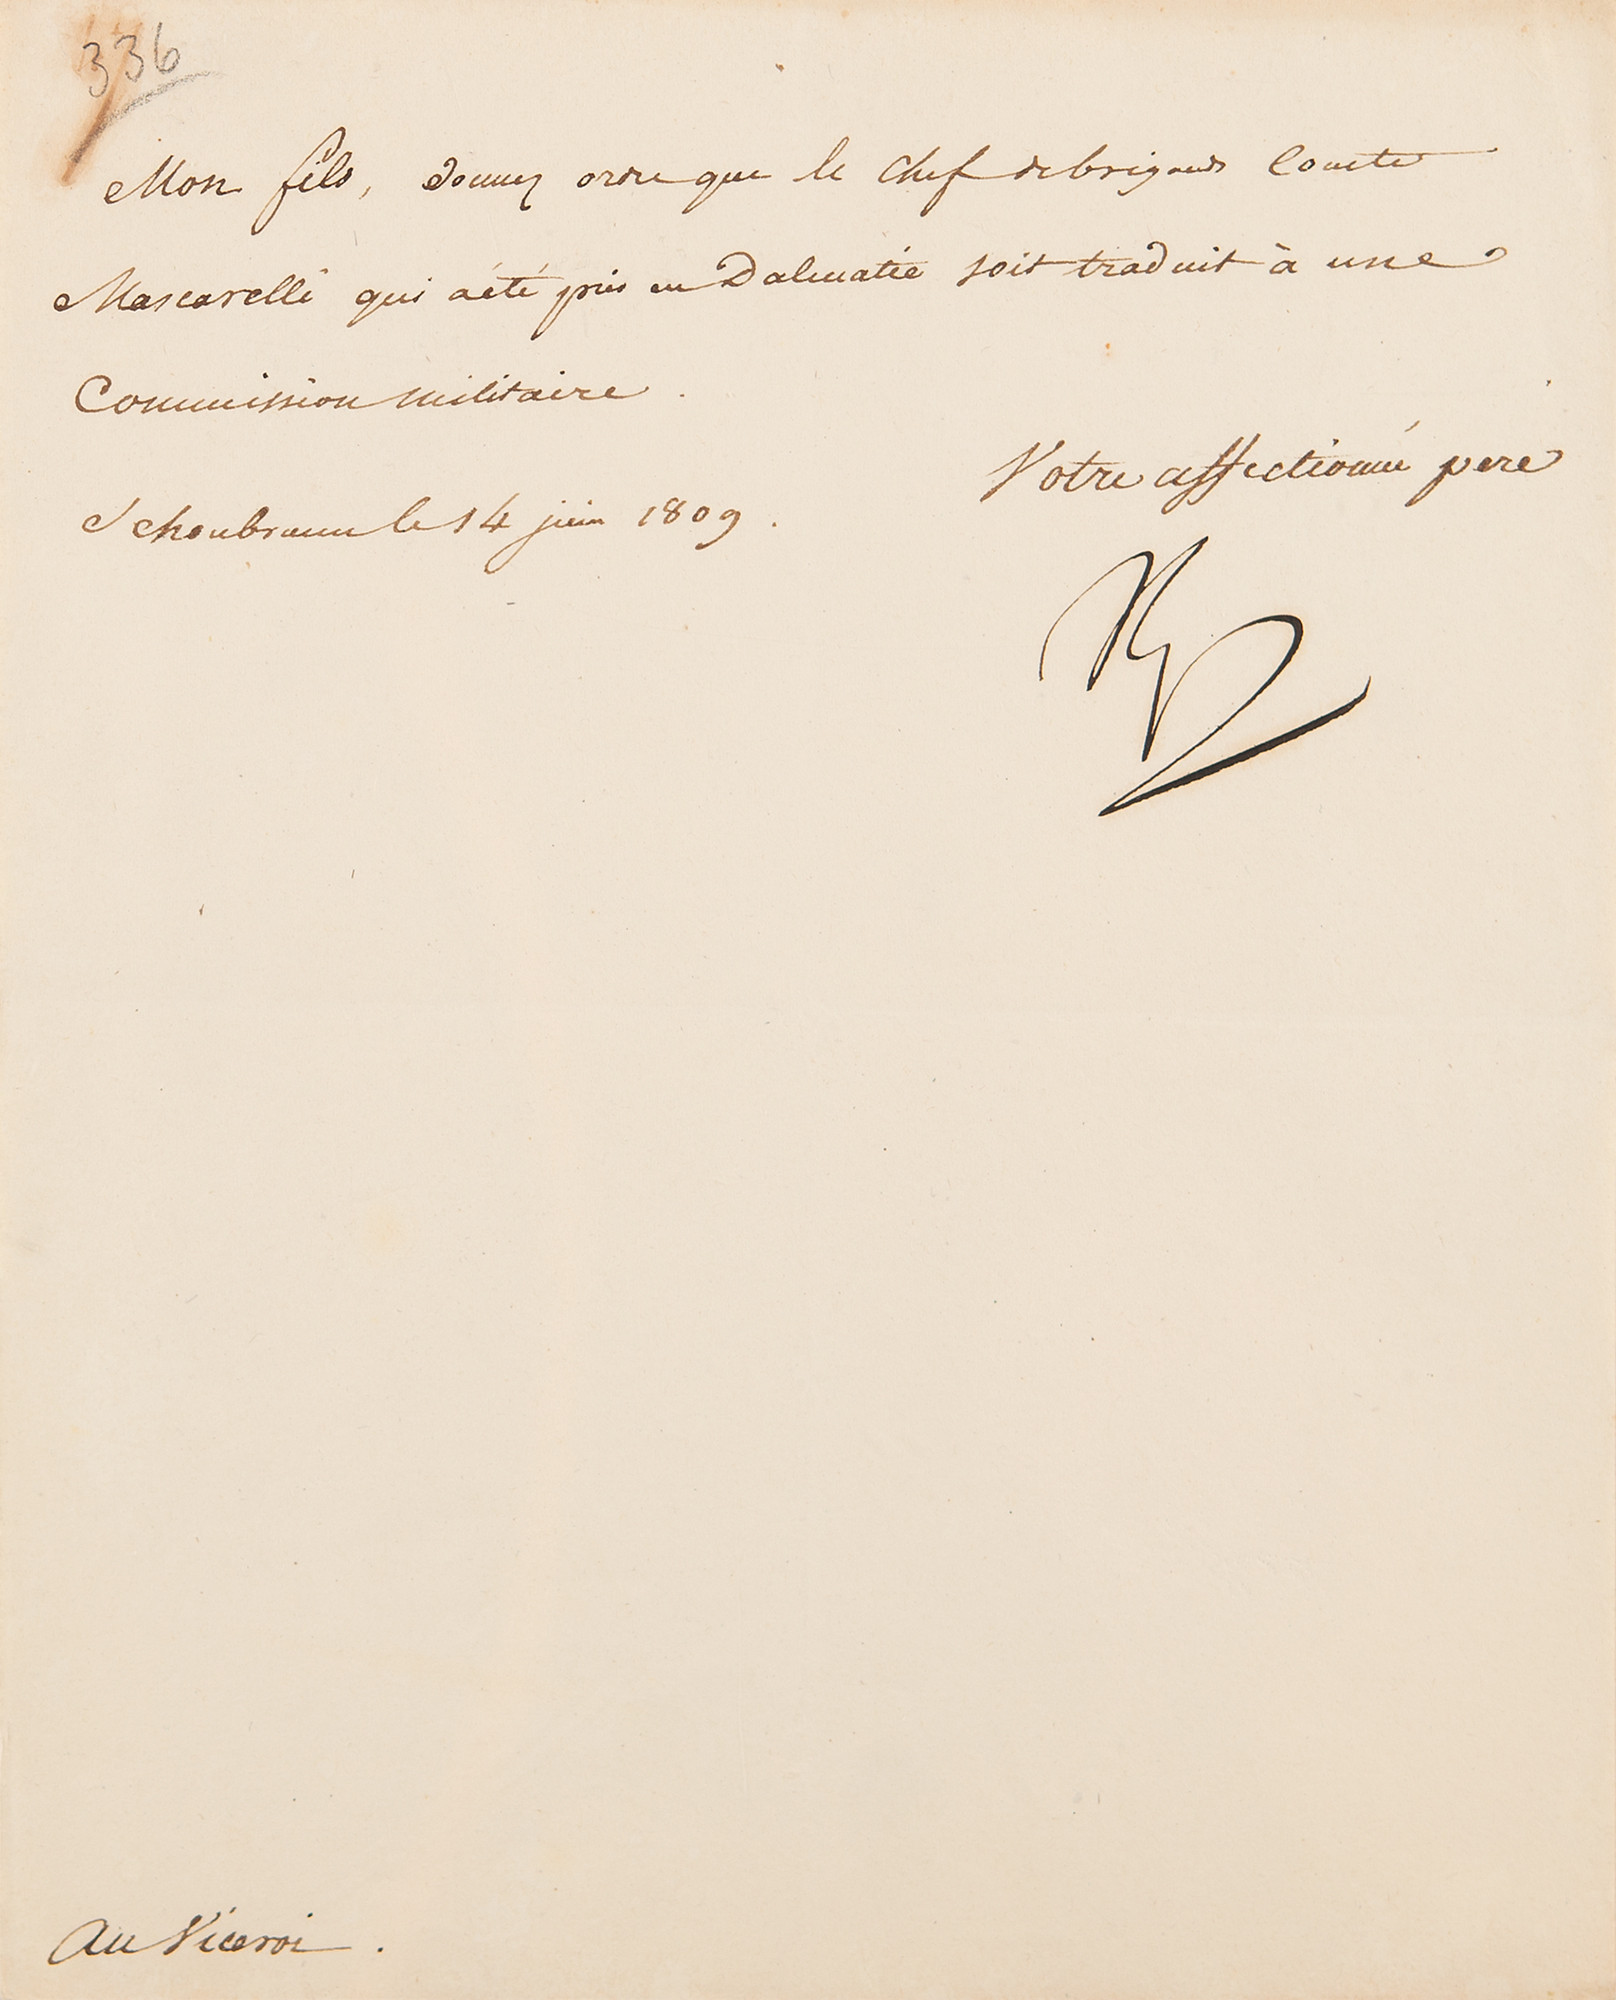 336
Mon fils, donnez ordre que le Chef de brigands Comte
Mascarelli qui a été pris en Dalmatie soit traduit à une
Commission militaire.
Votre affectionné pere
Schonbrunn le 14 juin 1809.
Np
Au Viceroi.